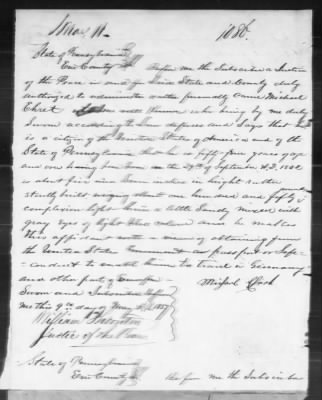 1080.
State of Pennsylvania
Erie County Before me the Subscriber a Justice
of the Peace in and for Said State and County duly
authorized to administer oaths personally came Michael
who being by me duly
Sworn according to Law deposes and Says that he
is a citizen of the United States of America and of the
State of Pennsylvania that he is fifty five years of age
and was on the 29th of September A.D. 1802
is about five feet inches in height rather
stoutly built weighing about one hundred and fifty pounds
complexion light hair a little Sandy mixed with
gray eyes of light blue colour and he makes
this affidavit as a means of obtaining from
the United States Government a passport or Safe-
conduct to enable him to travel in Germany
and other parts of Europe
Sworn and Subscribed before Michael
me this 9th day of May A.D. 1857
William
Justice of the Peace
State of Pennsylvania
Erie County Before me the Subscriber